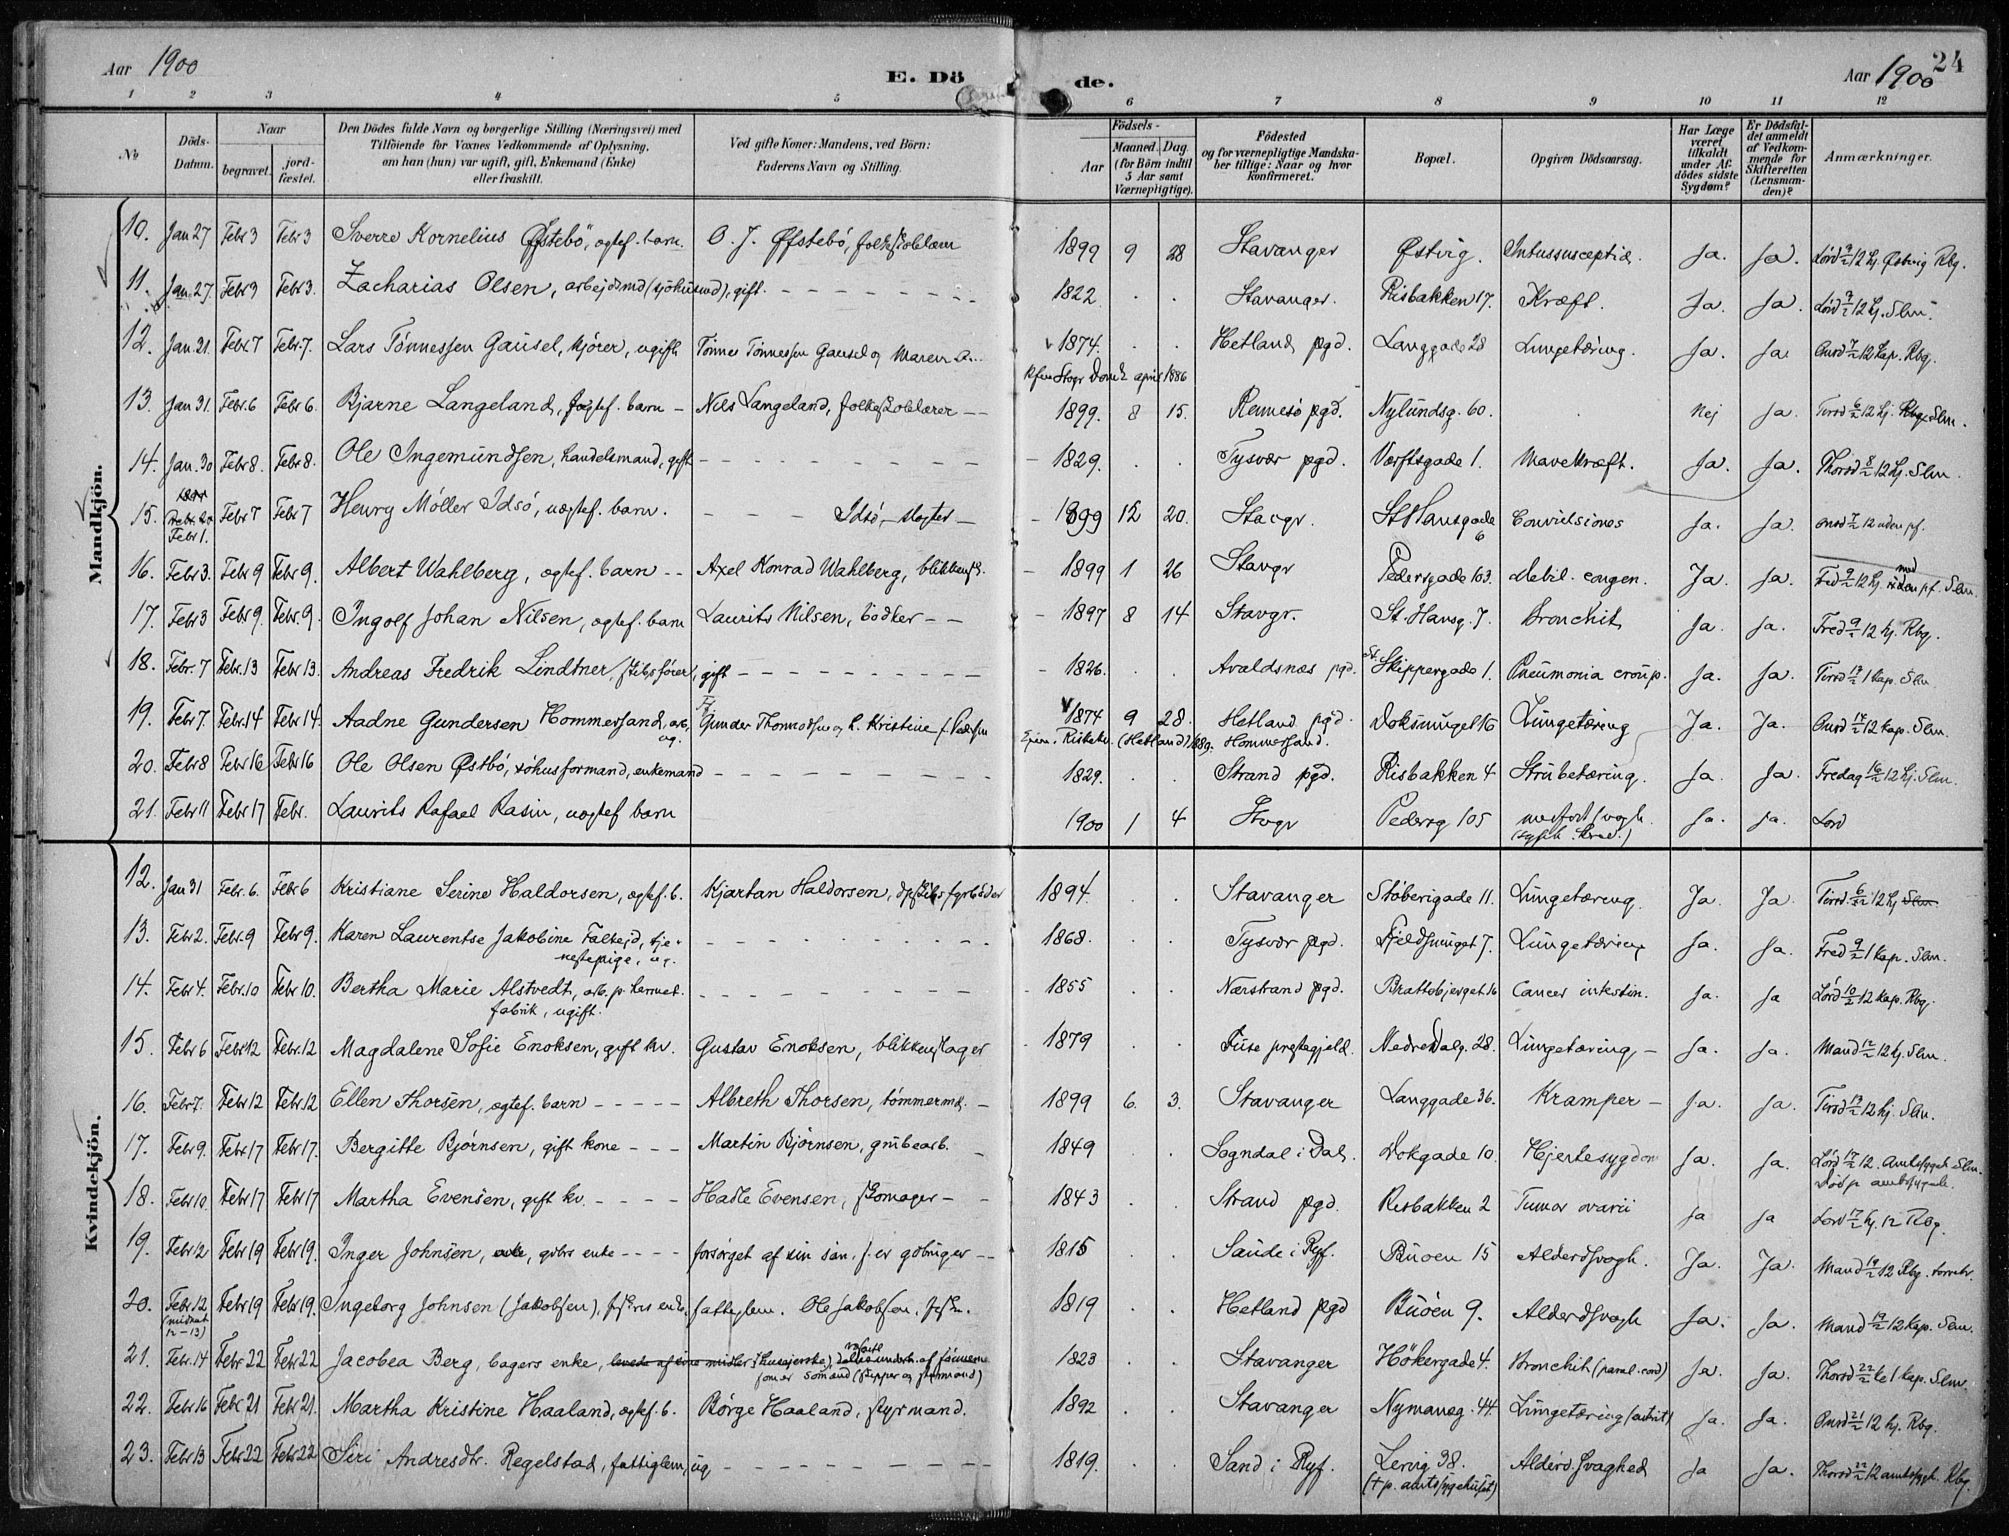 Aar 1900
E. Dö
de.
Aar 1900
24
1 2 3 4 5 6 7 8 9 10 11 12
No
Döds-Datum.
Naar
begravet.
jord-fæstet.
Den Dödes fulde Navn og borgerlige Stilling (Næringsvei) med
Tilföiende for Voxnes Vedkommende af Oplysning,
om han (hun) var ugift, gift, Enkemand (Enke)
eller fraskilt.
Ved gifte Koner: Mandens, ved Börn:
Faderens Navn og Stilling.
Födsels-
Aar
Maaned. Dag.
(for Börn indtil
5 Aar samt
Værnepligtige).
Födested
og for værnepligtige Mandska-
ber tillige: Naar og hvor
Konfirmeret.
Bopæl.
Opgiven Dödsaarsag.
Har Læge
været
tilkaldt
under Af-
dödes sidste
Sygdom?
Er Dödsfal-
det anmeldt
af Vedkom-
mende for
Skifteretten
(Lensman-
den)?
Anmærkninger.
Mandkjön.
10. Jan 27 Febr 3 Febr 3 Sverre Kornelius Østebö, ægtef. barn. O. J. Øfstebö, folkeskolelærer 1899 9 28 Stavanger Østvig. Intussusceptio. Ja. Ja. Lörd 3/2 12 kj. Østvig Rbg.
11. Jan 27. Febr 3 Febr 3. Zacharias Olsen, arbejdsmd (sjöhusmd), gift. 1822. Stavanger. Risbakken 17. Kræft. Ja. Ja. Lörd 3/2 12 kj. Slm.
12. Jan. 21. Febr. 7 Febr. 7. Lars Tönnessen Gausel, kjører, ugift Tönnes Tönnessen Gausel og Maren 1874. Hetland pgd. Langgade 28 Lungetæring. Ja. Ja. Onsd 7/2 12 kap. Rbg.
april 1886
13. Jan 31. Febr. 6 Febr 6. Bjarne Langeland, ægtef. barn - Nils Langeland, folkeskolelærer 1899. 8 15. Rennesø pgd. Nylundsg. 60. Nej Ja. Tirsd 6/2 12 kj. Slm.
14. Jan. 30 Febr 8. Febr 8. Ole Ingemundsen, handelsmand, gift 1829. Tysvær pgd. Værftsgade 1. Mavekræft. Ja. Ja. Thorsd 8/2 12 kj. Slm.
15. Febr 1. Febr 7 Febr 7 Henry Möller Idsö, uægtef. barn. Idsö, slagter 1899 12 20. Stavgr. St Hansgade 6 Convulsiones Ja. Ja. Onsd 7/2 12 uden pf.
16. Febr 3. Febr 9 Febr 9. Albert Wahlberg, ægtef. barn Axel Konrad Wahlberg, blikkensl. 1899 1 26 Stavgr Pedersgade 103. Debil. congen. Ja. Ja. Fred 9/2 12 kj. med pf. Slm.
17. Febr 3 Febr 9. Febr. 9. Ingolf Johan Nilsen, ægtef. barn Laurits Nilsen, bödker 1897 8 14 Stavgr. St. Hansg. 7. Bronchit Ja. Ja. Fred 9/2 12 kj. Rbg.
18. Febr. 7 Febr. 13 Febr 13. Andreas Fredrik Lindtner, skibsförer, gift 1826. Avaldsnæs pgd. St. Skippergade 1. Pneumonia croup. Ja. Ja. Tirsd 13/2 1 kap. Slm.
19. Febr 7. Febr. 14 Febr 14. Aadne Gundersen Hommersand, arb. ug. Gunder Thormodsen og h. Kristine f. Pedersen 1874 9 28. Hetland pgd. Hommersand. Doksmuget 16 Lungetæring Ja. Ja. Onsd 14/2 12 kap. Slm.
(Hetland) 1889.
20. Febr 8 Febr 16 Febr 16 Ole Olsen Østbö, söhusformand, enkemand 1829. Strand pgd. Risbakken 4 Strubetæring. Ja. Ja. Fredag 16/2 12 kj. Slm.
21. Febr 11 Febr 17 Febr. Laurits Rafael Rasin, uægtef barn 1900 1 4 Stvgr Pedersg 105 medfødt svagh. Ja. Ja. Lørd
Kvindekjön.
12. Jan 31 Febr. 6. Febr 6 Kristiane Serine Haldorsen, ægtef. b. Kjartan Haldorsen, dpskibsfyrböder 1894. Stavanger Støberigade 11. Lungetæring. Ja. Ja. Tirsd. 6/2 12 kj Slm.
13. Febr 2. Febr. 9 Febr 9. Karen Laurentse Jakobine Falkeid, tje-
nestepige, ug. 1868. Tysvær pgd. Fjeldsmuget 7. Lungetæring Ja. Ja. Fred 9/2 1 kap. Slm.
14. Febr 4. Febr. 10 Febr 10. Bertha Marie Alstvedt, arb. p. hermet.
fabrik, ugift. 1855 Nærstrand pgd. Brattebjerget 16 Cancer intestin. Ja. Ja Lörd 10/2 12 kap. Rbg.
15. Febr 6 Febr 12 Febr. 12 Magdalene Sofie Enoksen, gift kv. Gustav Enoksen, blikkenslager 1879 Fuse prestegjeld. Nedre Dalg. 28. Lungetæring, Ja. Ja. Mand 12/2 12 kj. Slm.
16. Febr 7. Febr 12 Febr 12 Ellen Thorsen, ægtef. barn Albreth Thorsen, tömmermd. 1899 6. 3. Stavanger Langgade 36. Kramper Ja. Ja. Tirsd 13/2 12 kj. Slm.
17. Febr 9. Febr 17 Febr 17. Bergitte Bjørnsen, gift kone Martin Bjørnsen, grubearb. 1849 Sogndal i Dal. Dokgade 10. Hjertesygdom Ja. Ja. Lörd 17/2 12. Amtssygeh. Slm.
Död p amtssygeh.
18. Febr 10. Febr 17 Febr 17 Martha Evensen, gift kv. Hadle Evensen, skomager 1843 Strand pgd. Risbakken 2 Tumor ovarii Ja Ja Lørd 17/2 kj. 12 Rbg.
19. Febr 12 Febr 19 Febr 19. Inger Johnsen, gbrs enke forsørget af sin sön. 1815 Saude i Ryf. Buøen 15 Alderdsvagh. Ja. Ja. Mand 19/2 12 Rbg.
20. Febr 12 (midnat 12-13) Febr 19 Febr 19. Ingeborg Johnsen (Jakobsen), fiskers enke, fattiglem. Ole Jakobsen. fisker. 1819 Hetland pgd Buöen 9. Alderdsvagh Ja. Ja. Mand 19/2 12 kap. Slm.
21. Febr. 14 Febr 22 Febr 22 Jacobea Berg, bagers enke, levede af sine midler (husejerske) underh. af sönnerne
som er sömænd (skipper og styrmand) 1823 Stavanger Hökergade 4. Bronchit (paral. cord) Ja. Ja. Thorsd 22/2 kl 1 kap. Slm.
22. Febr 16 Febr 21 Febr 21. Martha Kristine Haaland, ægtef. b. Børge Haaland, styrmand. 1892 Stavanger Nymansg. 44. Lungetæring Ja. Ja. Onsd 21/2 12 kj. Rbg.
23. Febr 13 Febr 22 Febr 22 Siri Andresdtr. Regelstad, fattiglem, ug 1819. Sand i Ryf. Lervig 38.
(† p. amtssygehuset) Alderd. svaghed Ja Ja. Thorsd 22/2 12 amtssygeh. Rbg.